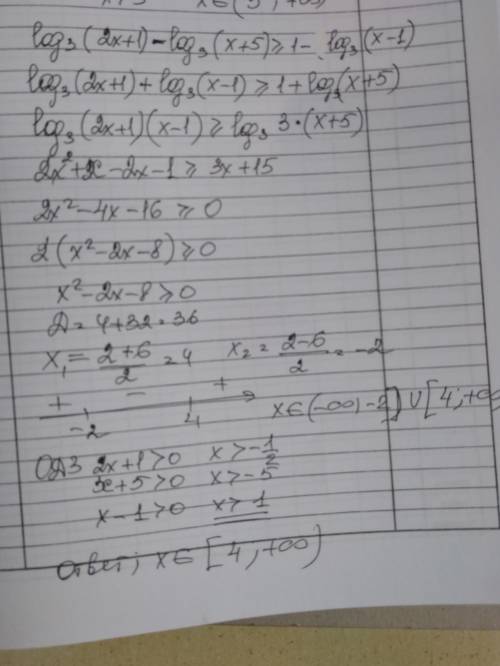 x∈(5;+∞)
log₃(2x+1)-log₃(x+5)≥1-log₃(x-1)
log₃(2x+1)+log₃(x-1)≥1+log₃(x+5)
log₃(2x+1)(x-1)≥log₃3•(x+5)
2x²+x-2x-1≥3x+15
2x²-4x-16≥0
2(x²-2x-8)≥0
x²-2x-8≥0
Д=4+32=36
x₁=(2+6)/2=4 x₂=(2-6)/2=-2
+ - +
-2 4 x∈(-∞;-2]∪[4;+∞
ОДЗ 2x+1>0 x>-1/2
x+5>0 x>-5
x-1>0 x>1
Ответ; x∈[4;+∞)